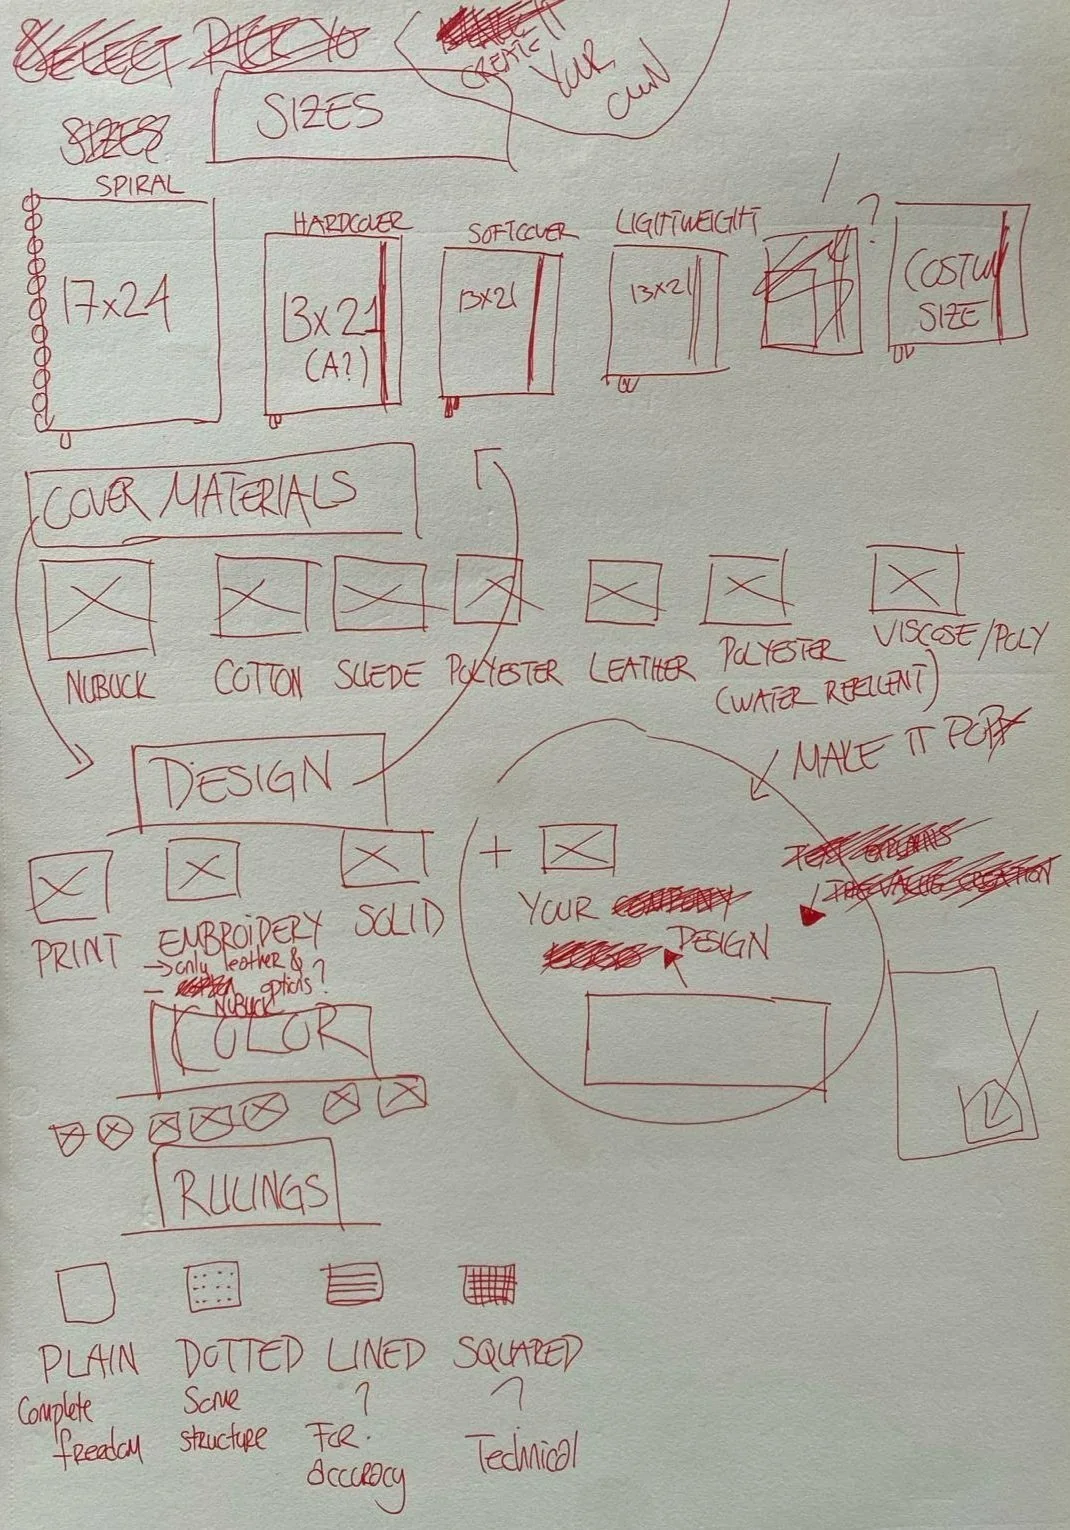 CREATE
YOUR
OWN
SIZES
SIZES
SPIRAL
HARDCOVER
SOFTCOVER
LIGHTWEIGHT
?
17x24
13x21
(A?)
13x21
13x21
COSTUM
SIZE
COVER MATERIALS
NUBUCK
COTTON
SUEDE
POLYESTER
LEATHER
POLYESTER
(WATER REPELLENT)
VISCOSE/POLY
DESIGN
MAKE IT POP
+
YOUR
DESIGN
PRINT
EMBROIDERY
→ only leather &
- options?
NUBUCK
SOLID
COLOR
RULINGS
PLAIN
Complete
freedom
DOTTED
Some
structure
LINED
?
For
accuracy
SQUARED
?
Technical